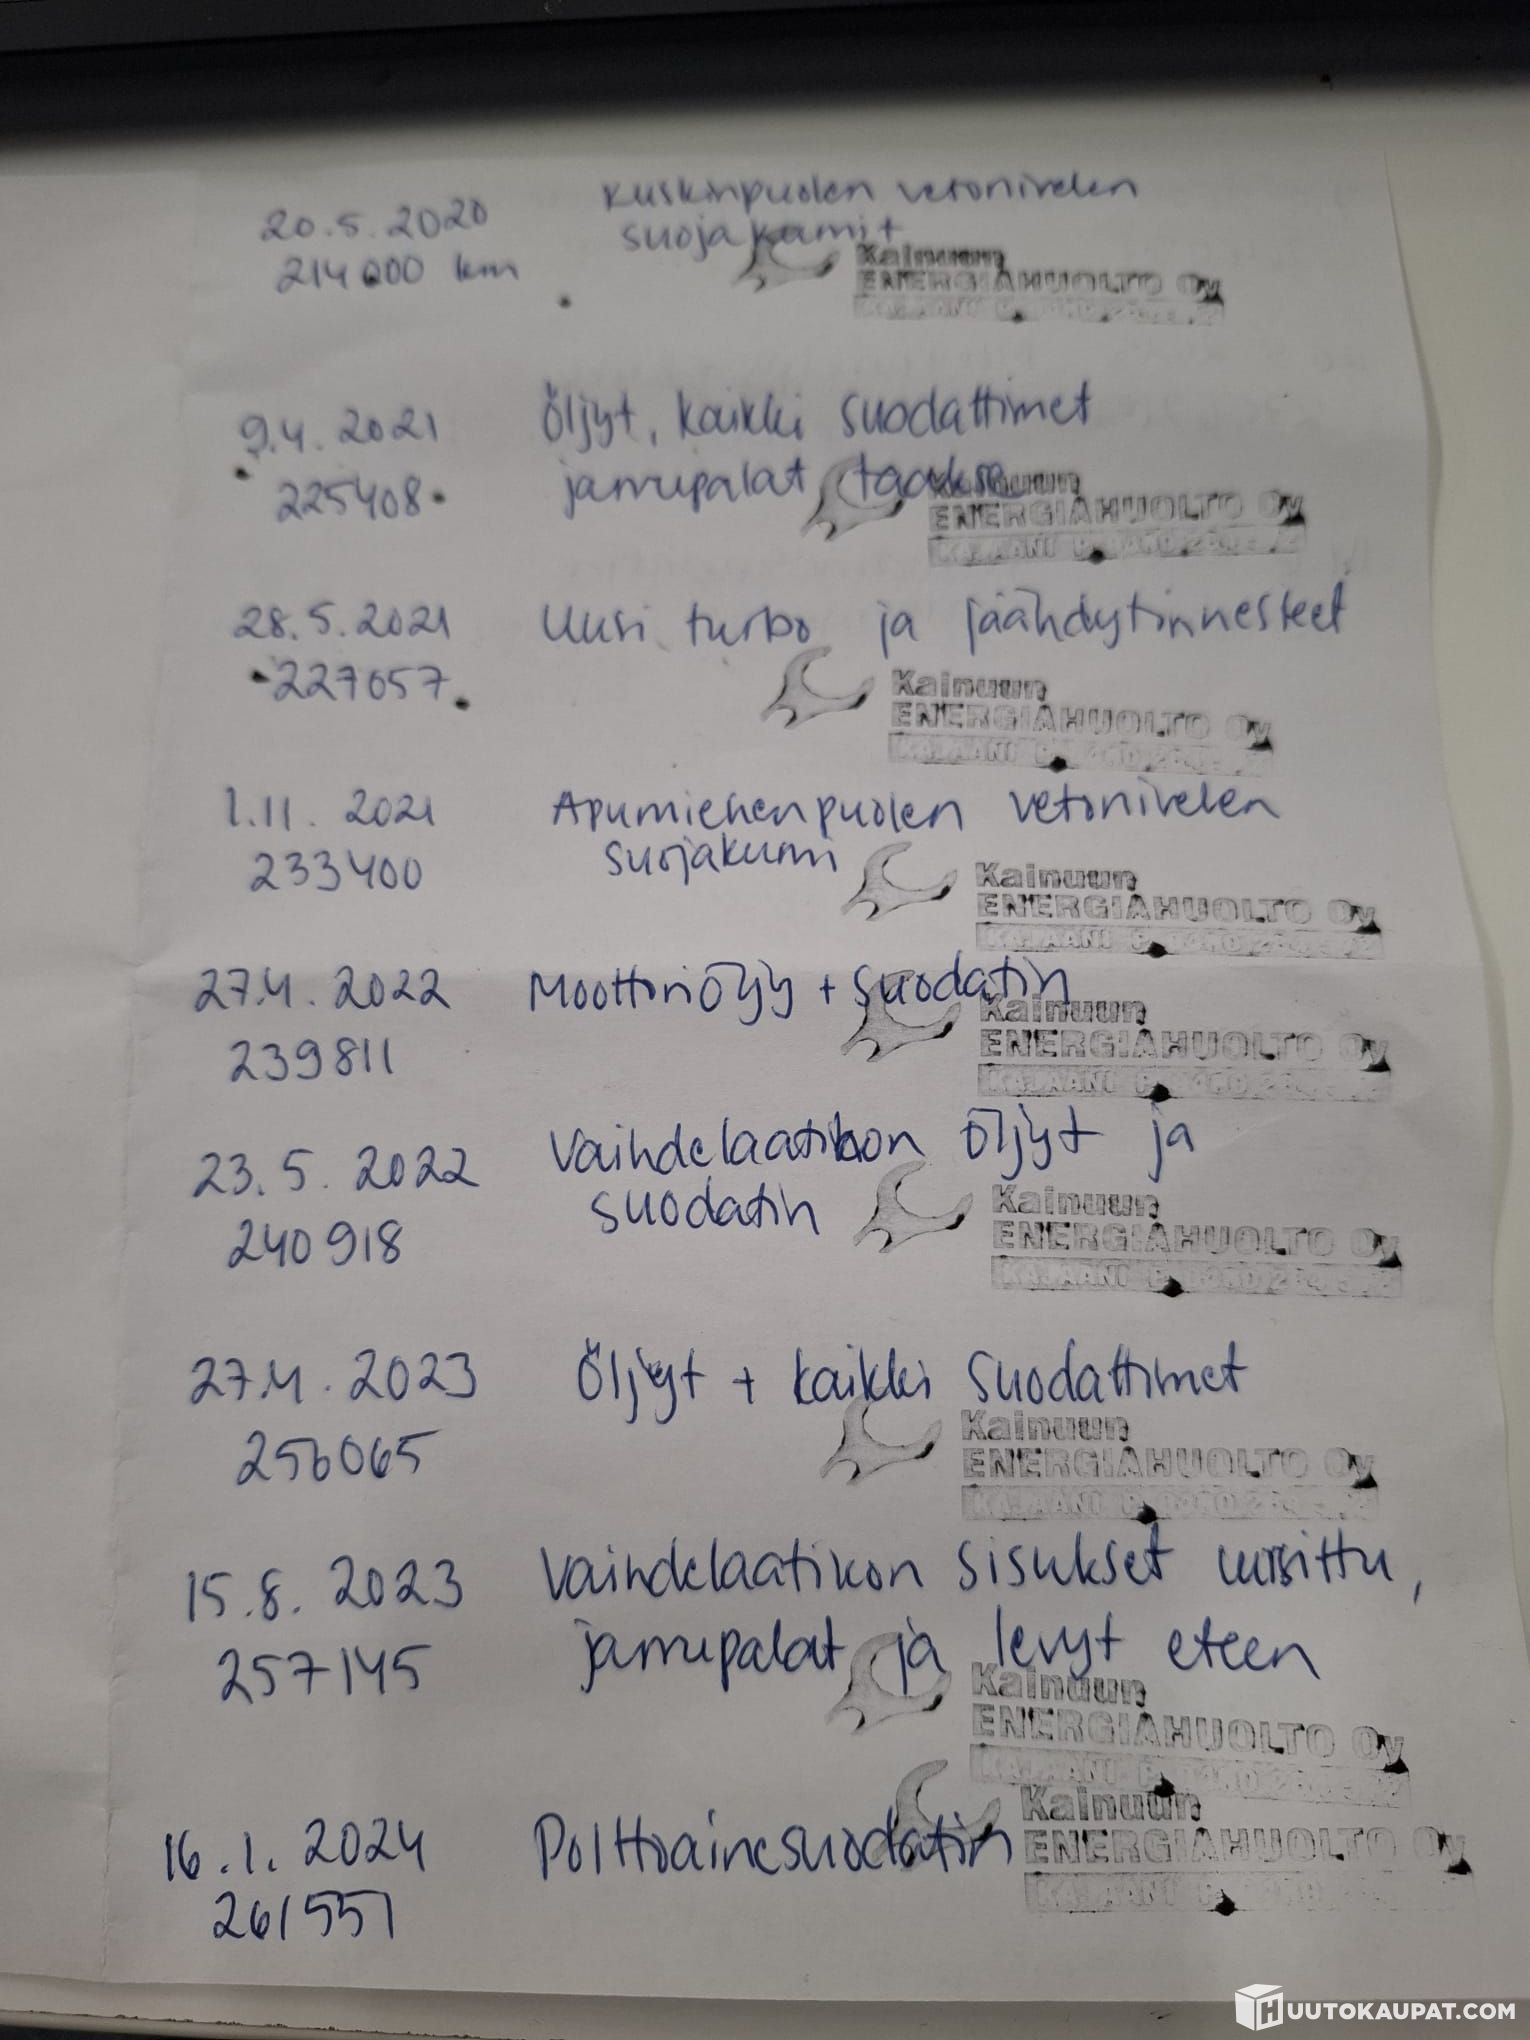 20.5.2020 Kuskinpuolen vetonivelen
214000 km suojakumit
Kainuun
ENERGIAHUOLTO Oy
KAJAANI
9.4. 2021 Öljyt, kaikki suodattimet
225408 jarrupalat taakse
Kainuun
ENERGIAHUOLTO Oy
KAJAANI
28.5.2021 Uusi turbo ja jäähdytinnesteet
227057
Kainuun
ENERGIAHUOLTO Oy
KAJAANI
1.11. 2021 Apumiehenpuolen vetonivelen
233400 suojakumi
Kainuun
ENERGIAHUOLTO Oy
KAJAANI
27.4. 2022 Moottoriöljy + suodatin
Kainuun
239811
ENERGIAHUOLTO Oy
KAJAANI
23.5. 2022 Vaihdelaatikon öljyt ja
240918 suodatin
Kainuun
ENERGIAHUOLTO Oy
KAJAANI
27.4. 2023 Öljyt + kaikki suodattimet
256065
Kainuun
ENERGIAHUOLTO Oy
KAJAANI
15.8. 2023 Vaihdelaatikon sisukset uusittu,
257145 jarrupalat ja levyt eteen
Kainuun
ENERGIAHUOLTO Oy
KAJAANI
16.1. 2024 Polttoainesuodatin
Kainuun
ENERGIAHUOLTO Oy
261551
KAJAANI
HUUTOKAUPAT.COM